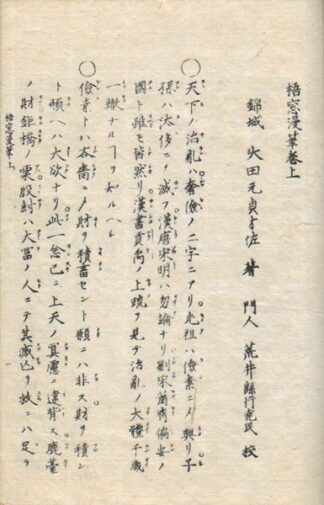 梧窓漫筆巻上
錦城 大田元貞才佐 著 門人 荒井縣行堯民 校
○天下ノ治乱ハ奢儉ノ二字ニアリ先祖ハ儉素ニメ興リ子
孫ハ汰侈ニメ滅フ漢唐宋明ハ勿論ナリ劉宋蕭齊偏安ノ
國ト雖モ皆然リ漢書貢禹ノ上疏ヲ見テ治乱ノ大體千歳
一轍ナルヿヲ知ルヘシ
○儉素トハ吝嗇ノ財ヲ積畜セント願ニハ非ス財ヲ積ン
ト願ヘハ大欲ナリ此一念已ニ上天ノ冥慮ニ違背ス鹿臺
ノ財鉅橋ノ粟殷紂ハ大冨ノ人ニテ其滅亡ヲ救ニハ足ラ
梧窓漫筆上